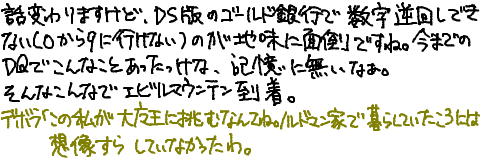 話変わりますけど、DS版のゴールド銀行で数字逆回しでき
ない(0から9に行けない)のが地味に面倒ですね。今までの
DQでこんなことあったっけな、記憶に無いなあ。
そんなこんなでエビルマウンテン到着。
デボラ「この私が大魔王に挑むなんてね。ルドマン家で暮らしていたころには
想像すらしていなかったわ。